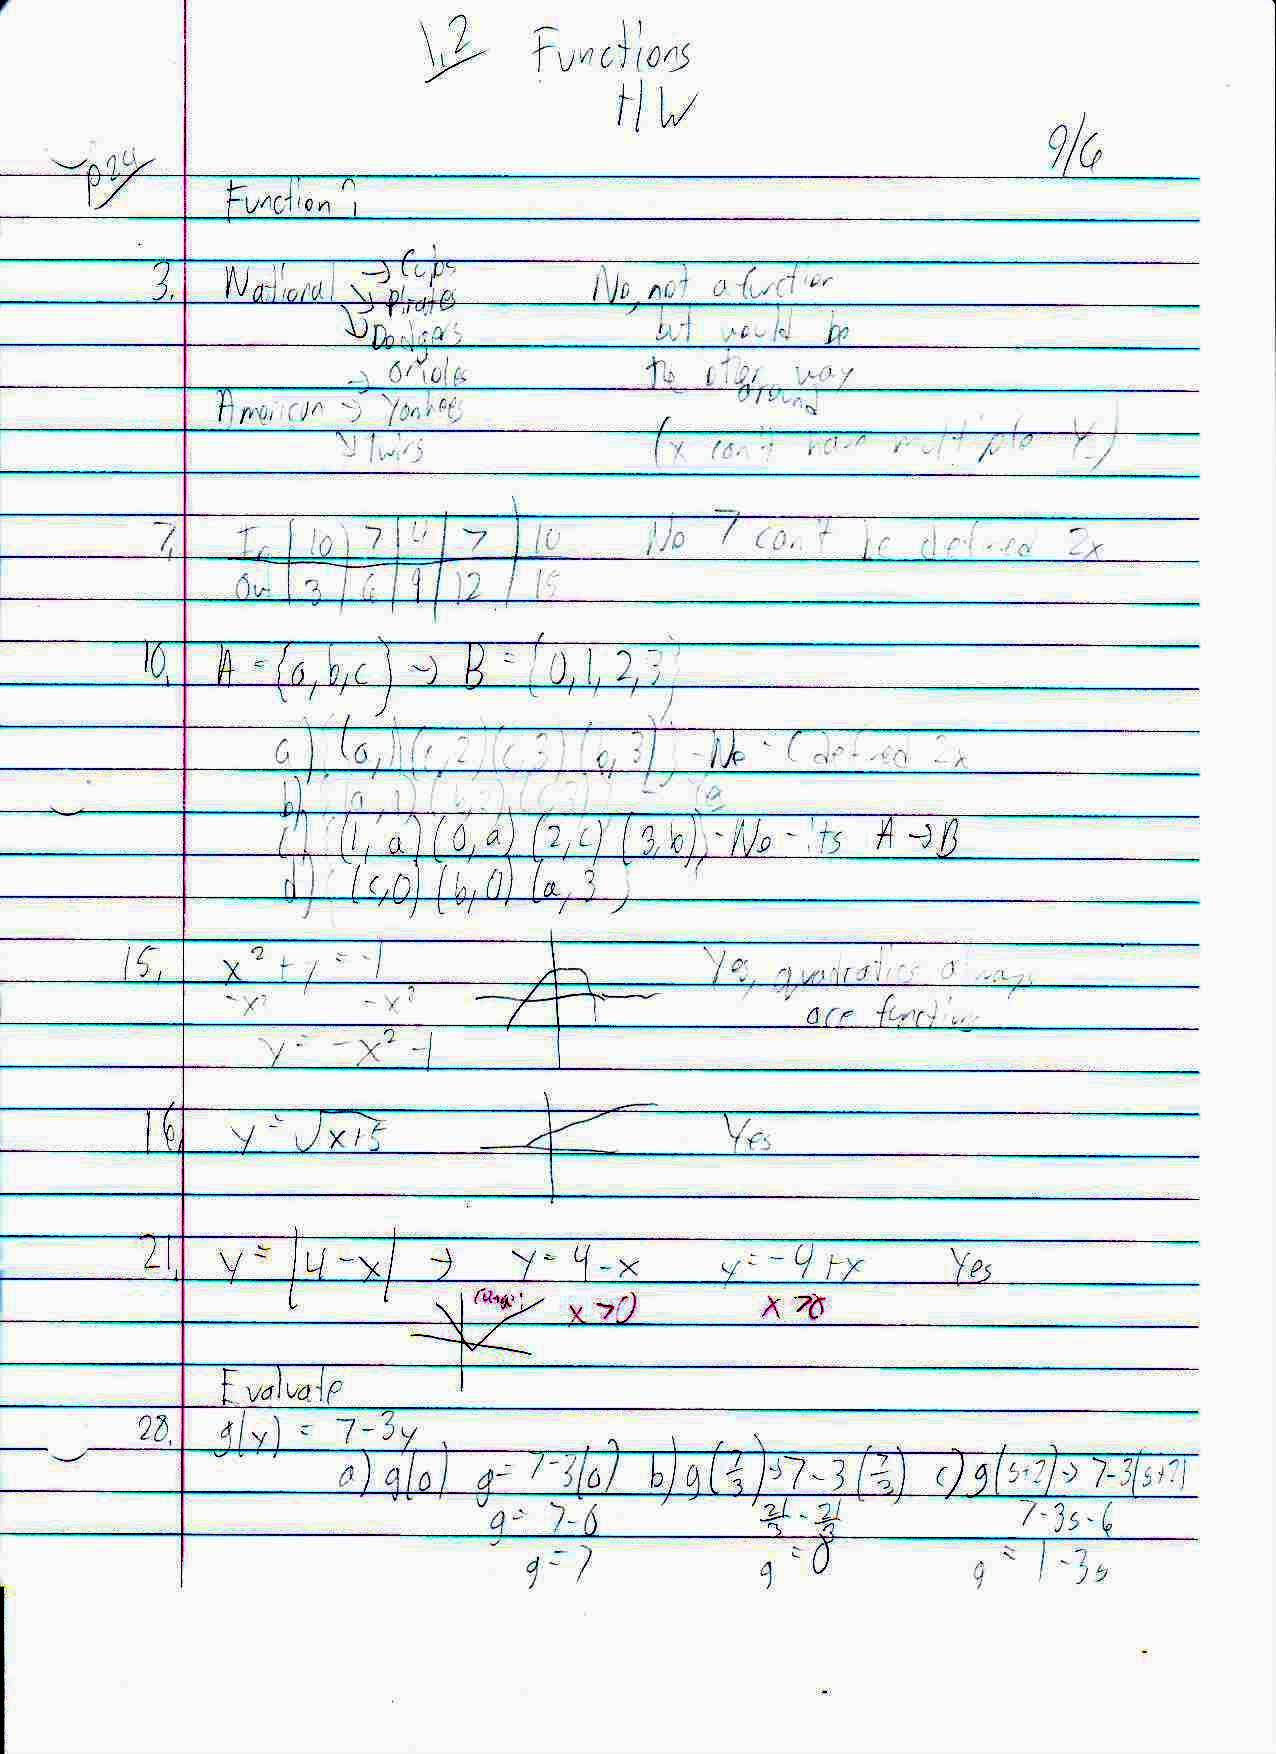 1.2 Functions
HW
9/6
p24
Function?
3. National → Cubs No, not a function
→ Pirates
→ Dodgers but would be
→ Orioles the other way
around
American → Yankees
→ Twins (x can't have multiple Y)
7. In | 10 | 7 | 4 | 7 | 10 No 7 can't be defined 2x
Out | 3 | 6 | 9 | 12 | 15
10. A = {a, b, c} → B = {0, 1, 2, 3}
a) {(a, 1) (c, 2) (c, 3) (b, 3)} - No - C defined 2x
b)
c) {(1, a) (0, a) (2, c) (3, b)} - No - its A → B
d) {(c, 0) (b, 0) (a, 3)}
15. x² + y = -1 Yes, quadratics always
-x² -x² are functions
y = -x² - 1
16. y = √x+5 Yes
21. y = |4 - x| → y = 4 - x y = -4 + x Yes
x > 0
Evaluate
28. g(y) = 7 - 3y
a) g(0) g = 7 - 3(0) b) g(7/3) → 7 - 3(7/3) c) g(s+2) → 7 - 3(s+2)
g = 7 - 0 21/3 - 21/3 7 - 3s - 6
g = 7 g = 0 g = 1 - 3s